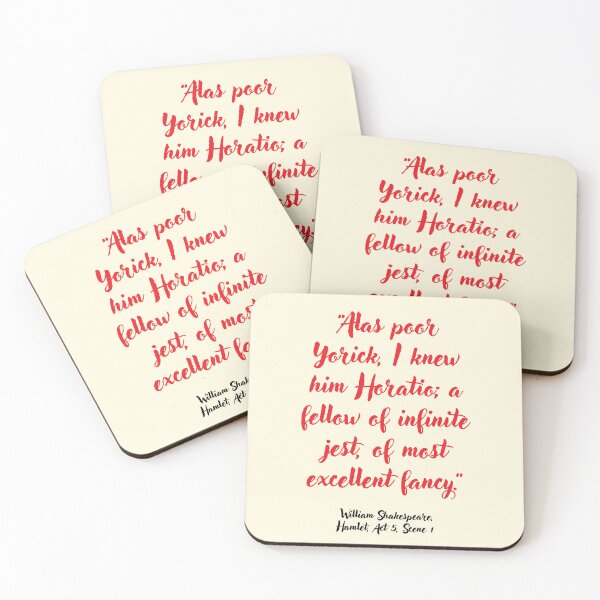 “Alas poor
Yorick, I knew
him Horatio; a
“Alas poor
Yorick, I knew
him Horatio; a
fellow of infinite
jest, of most
“Alas poor
Yorick, I knew
him Horatio; a
fellow of infinite
jest, of most
excellent
William
Hamlet, Act
“Alas poor
Yorick, I knew
him Horatio; a
fellow of infinite
jest, of most
excellent fancy.”
William Shakespeare,
Hamlet, Act 5, Scene 1